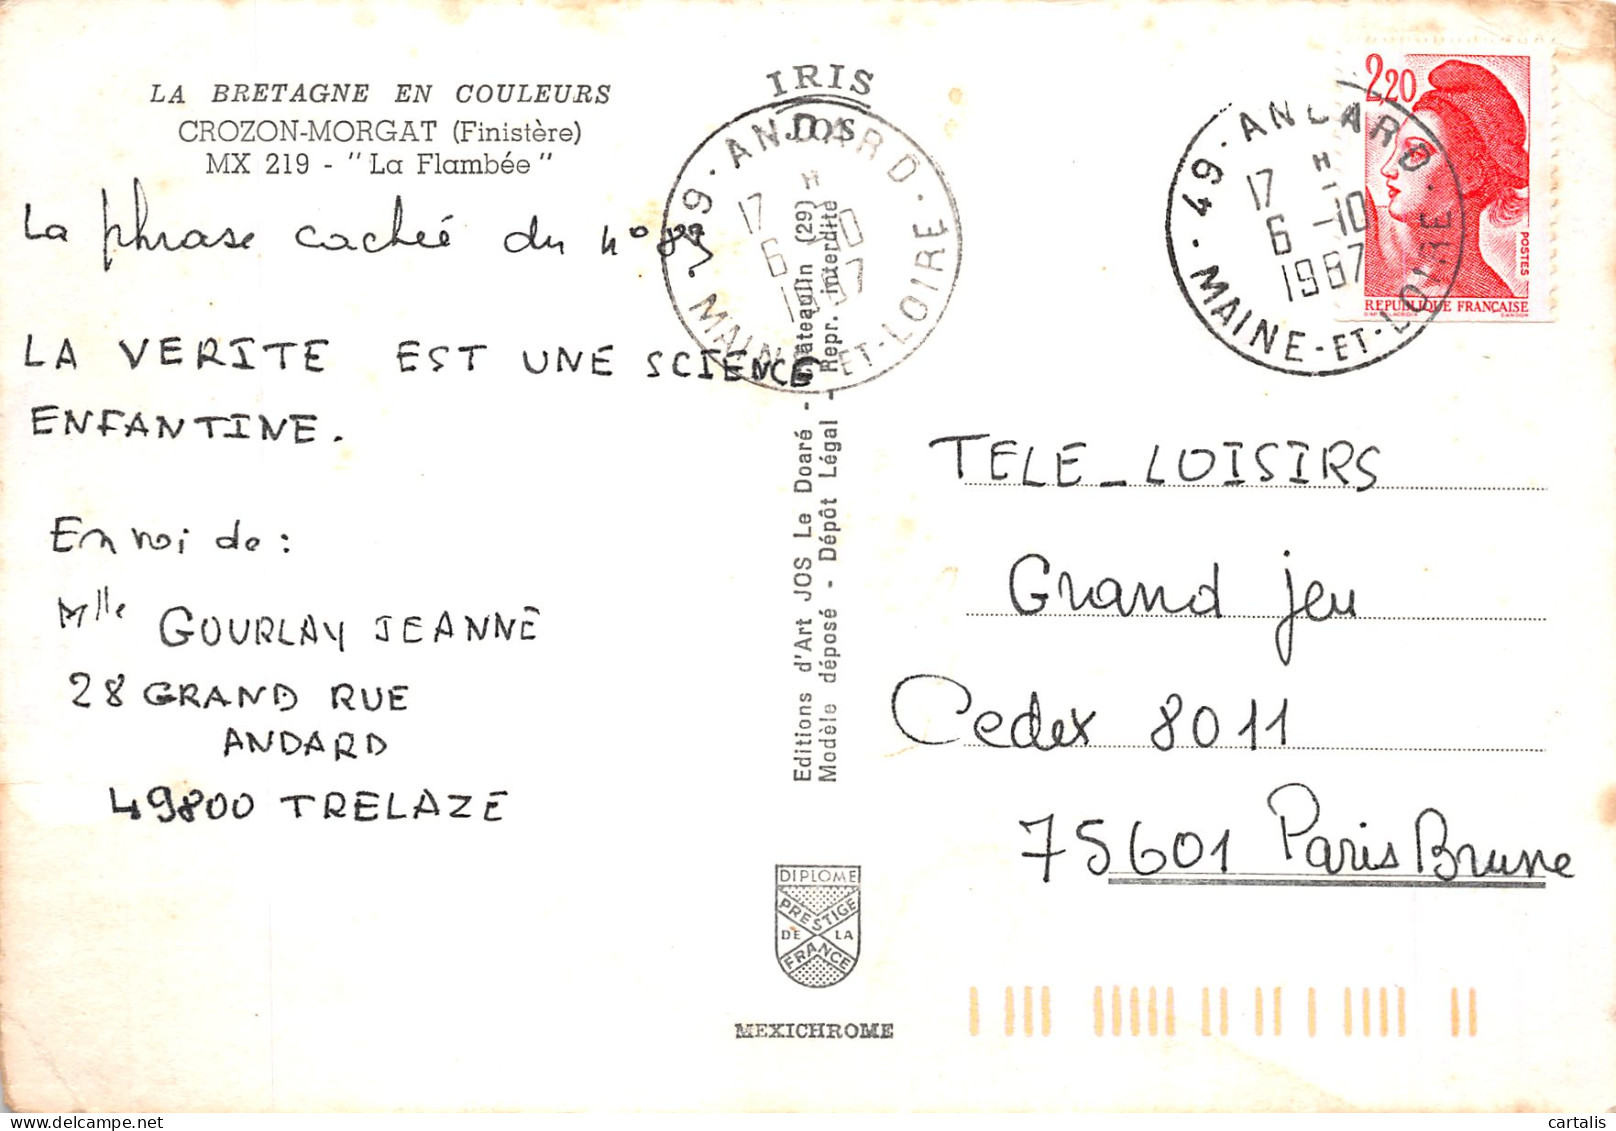 LA BRETAGNE EN COULEURS
CROZON-MORGAT (Finistère)
MX 219 - "La Flambée"
La phrase cachée du n° 83
LA VERITE EST UNE SCIENCE
ENFANTINE.
Envoi de :
Mlle GOURLAY JEANNE
28 GRAND RUE
ANDARD
49800 TRELAZE
IRIS
JOS
49 - ANDARD -
MAINE-ET-LOIRE
17 H
6 -10
1987
Editions d'Art JOS Le Doaré - Châteaulin (29)
Modèle déposé - Dépôt Légal - Repr. interdite
DIPLOME
PRESTIGE
DE LA
FRANCE
MEXICHROME
49 - ANDARD -
MAINE-ET-LOIRE
17 H
6 -10
1987
2,20
POSTES
REPUBLIQUE FRANÇAISE
TELE_LOISIRS
Grand jeu
Cedex 8011
75601 Paris Brune
cartalis